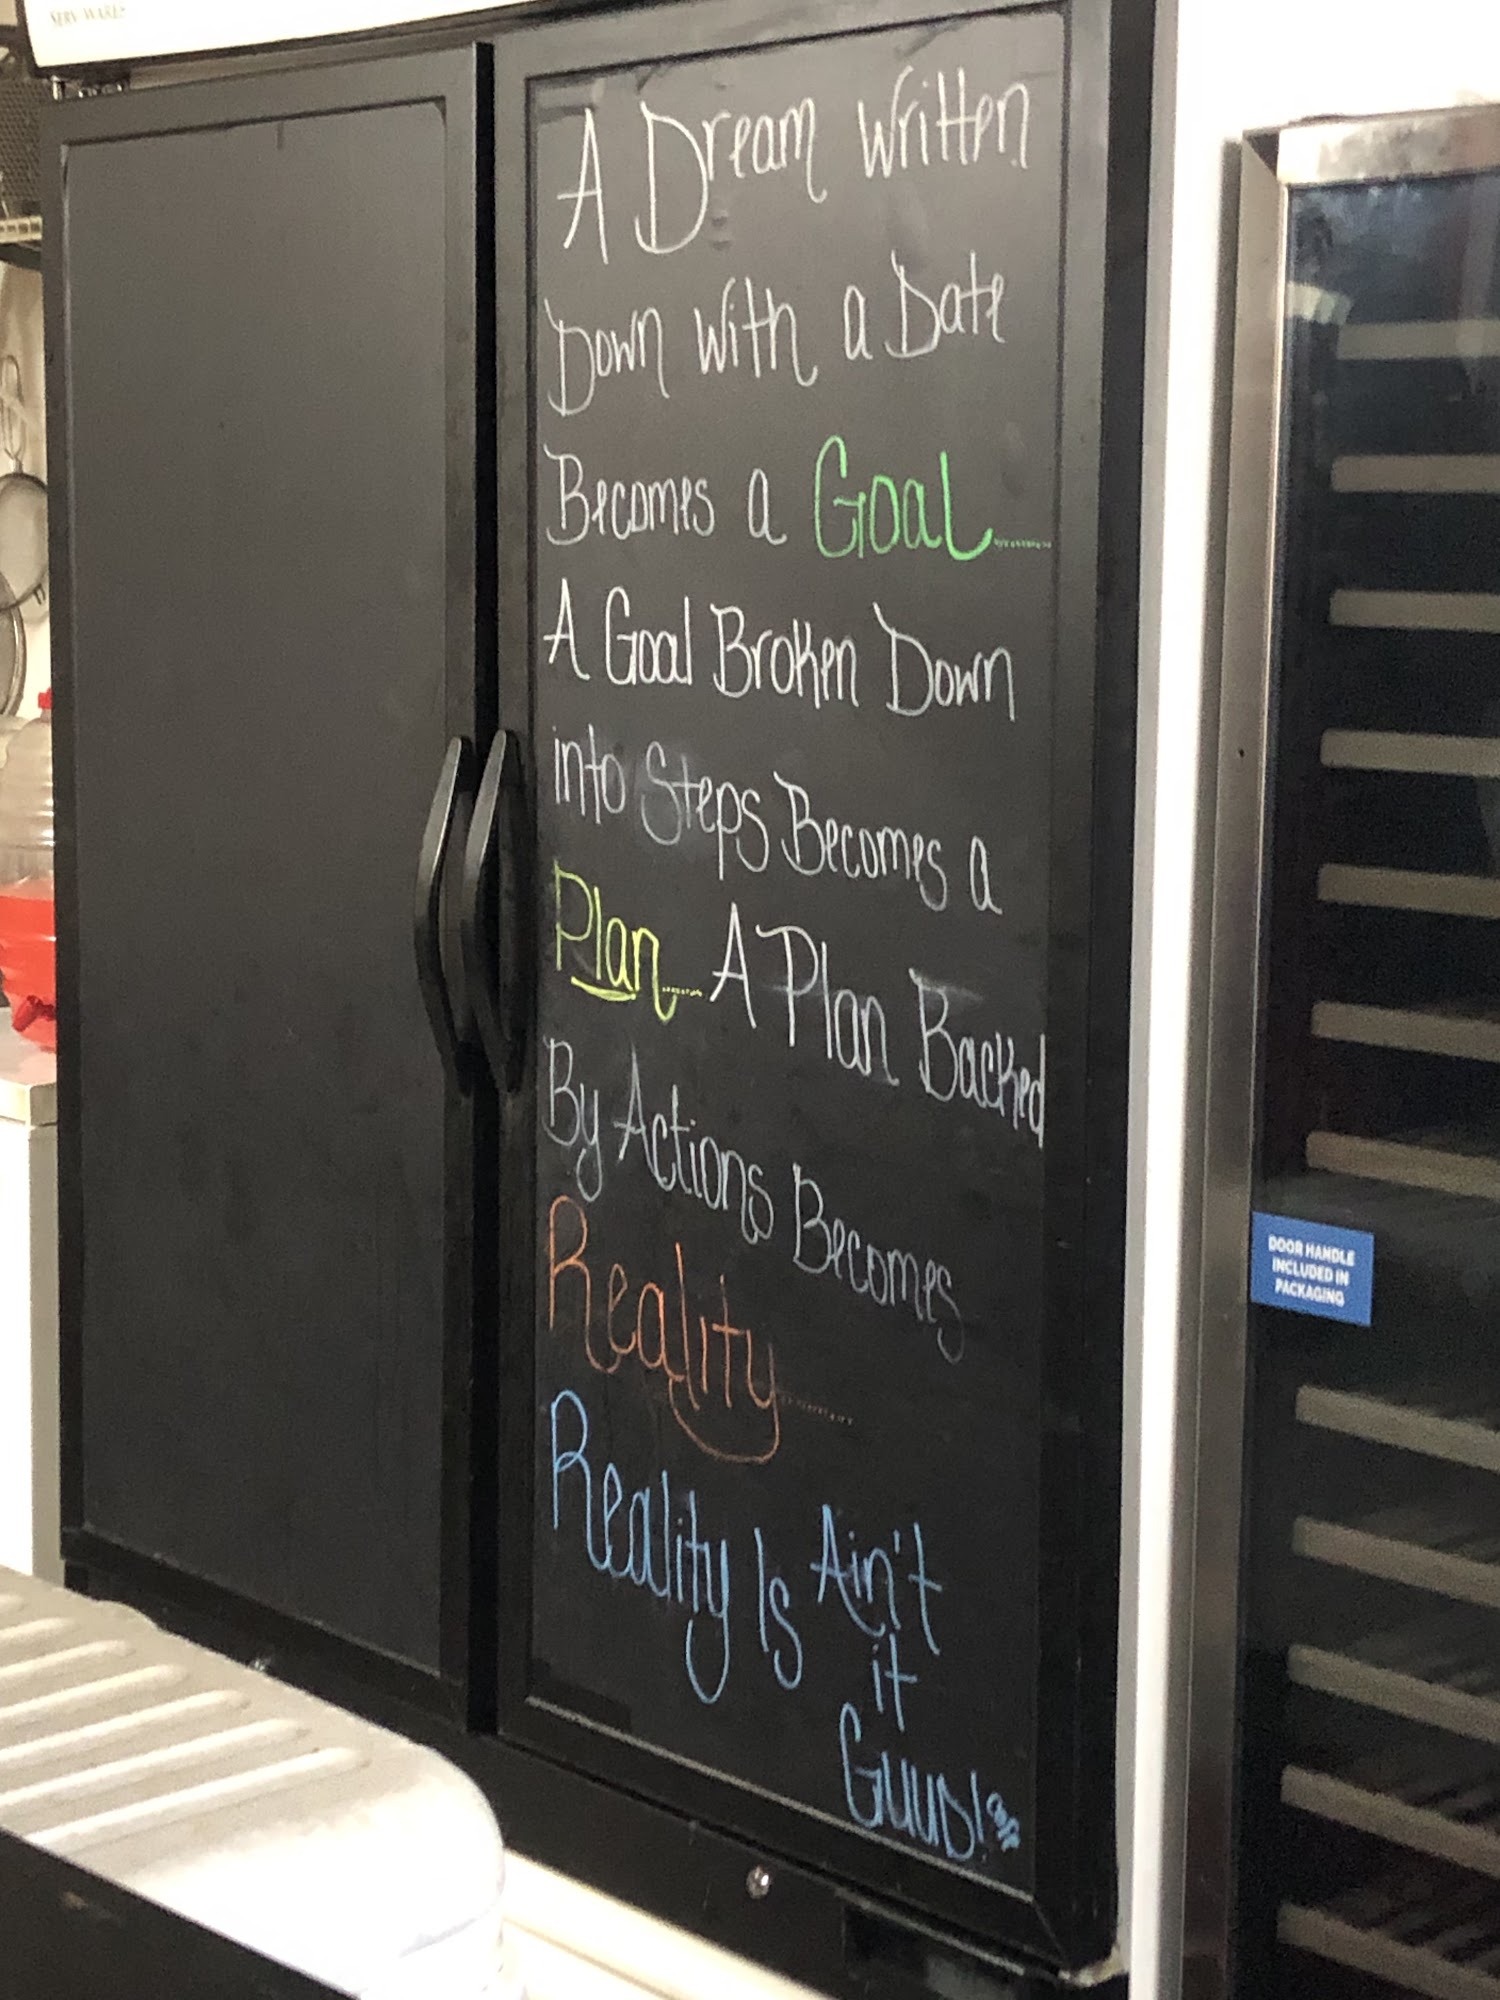 SERV-WARE
A Dream Written
Down With a Date
Becomes a Goal........
A Goal Broken Down
into Steps Becomes a
Plan........ A Plan Backed
By Actions Becomes
Reality..........
Reality Is Ain't
it
Guud!
DOOR HANDLE
INCLUDED IN
PACKAGING